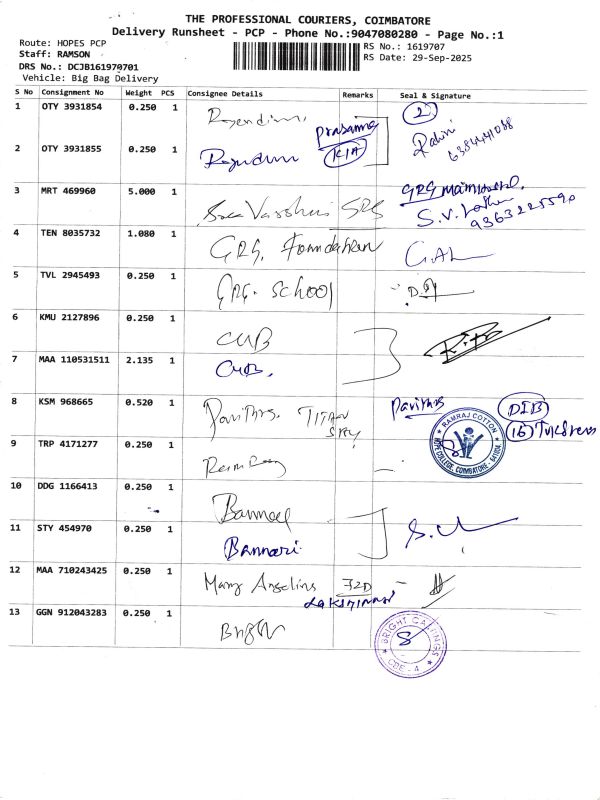 THE PROFESSIONAL COURIERS, COIMBATORE
Delivery Runsheet - PCP - Phone No.:9047080280 - Page No.:1
Route: HOPES PCP
Staff: RAMSON
DRS No.: DCJB161970701
Vehicle: Big Bag Delivery
RS No.: 1619707
RS Date: 29-Sep-2025
S No Consignment No Weight PCS Consignee Details Remarks Seal & Signature
1 OTY 3931854 0.250 1 2
Prasanna
2 OTY 3931855 0.250 1 KIA Rahini
6384441088
3 MRT 469960 5.000 1 SRS GRG
S.V.
9363225590
4 TEN 8035732 1.080 1 GRG. Foundation
5 TVL 2945493 0.250 1 GRG. SCHOOL
6 KMU 2127896 0.250 1 CUB
7 MAA 110531511 2.135 1 CUB.
8 KSM 968665 0.520 1 Pavithra. TITAN Pavithra DIB
SKY
RAMRAJ COTTON
HOPE COLLEGE, COIMBATORE - 641004.
9 TRP 4171277 0.250 1
10 DDG 1166413 0.250 1 Bannari
11 STY 454970 0.250 1 Bannari.
12 MAA 710243425 0.250 1 Mary Angelins
13 GGN 912043283 0.250 1
BRIGHT CASTINGS
CBE - 4